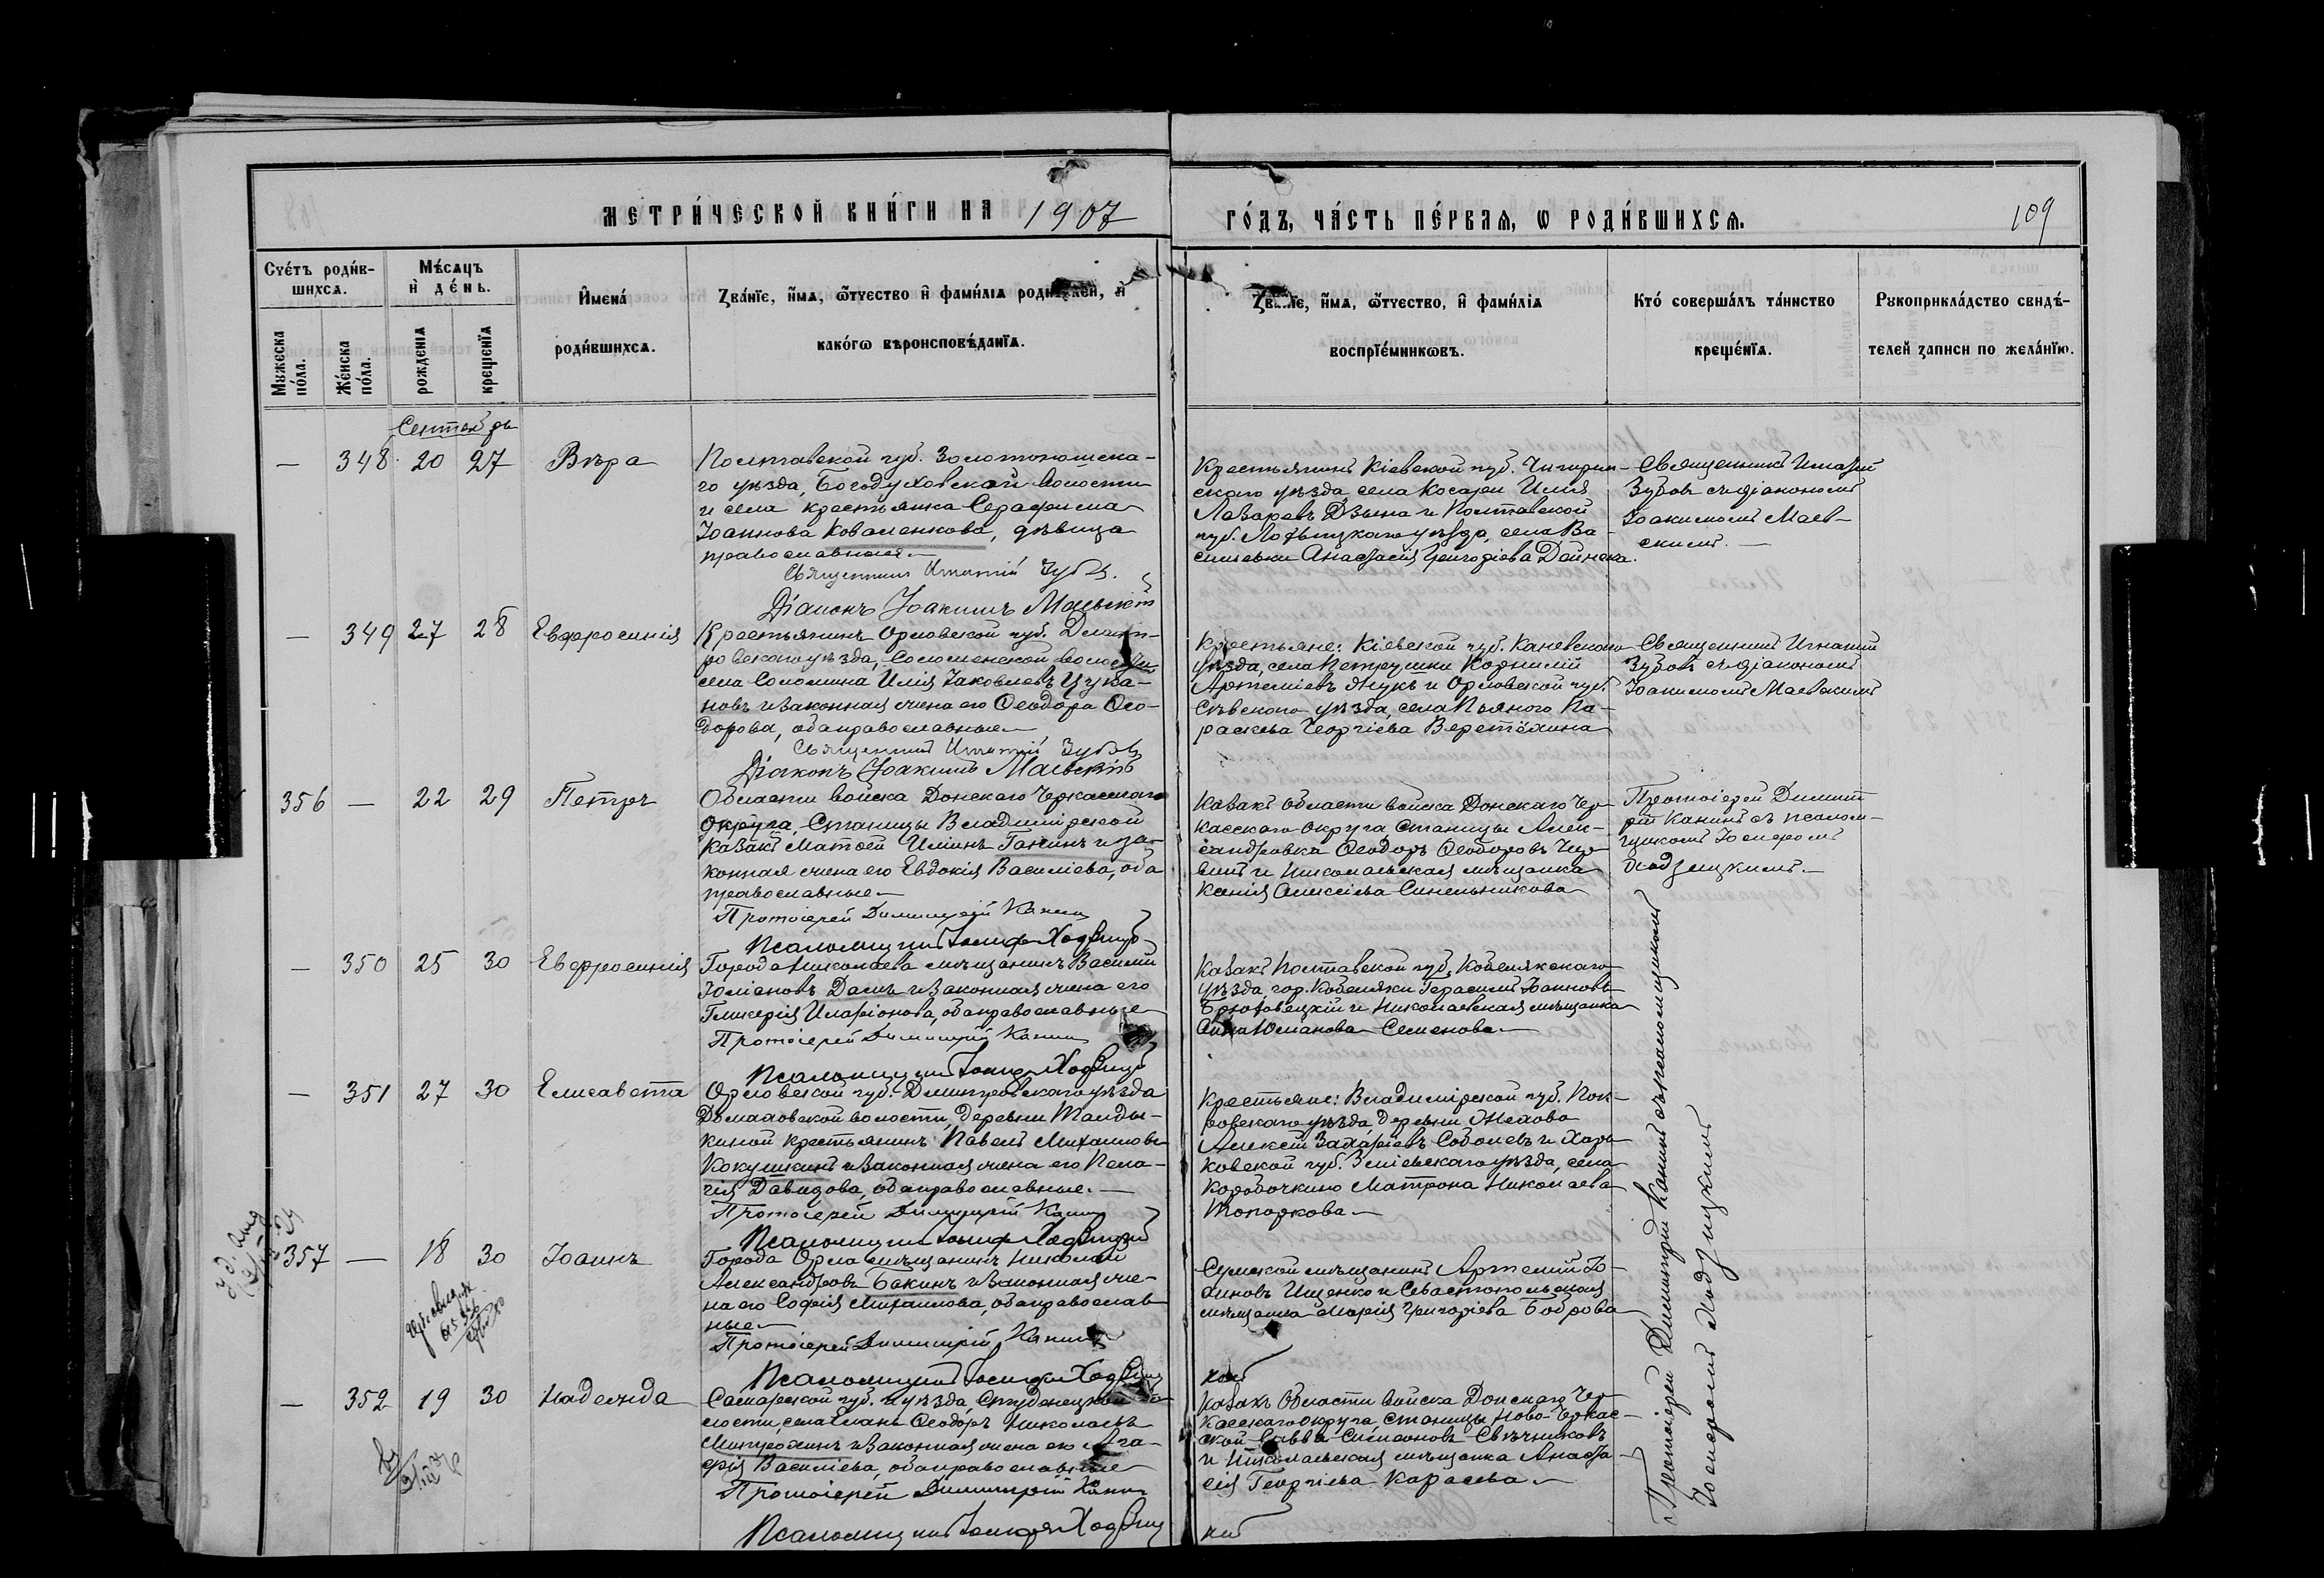 МЕТРИ́ЧЕСКОЙ КНИ́ГИ НА 1907
ГО́ДЪ, ЧА́СТЬ ПЕ́РВАѦ, Ѡ РОДИ́ВШИХСѦ.
109
Счетъ роди́в-
шихсѧ.
Мѣ́сѧцъ
и҆ де́нь.
Мꙋжеска
по́ла.
Же́нска
по́ла.
рожденїѧ
крещенїѧ
И҆мена́
роди́вшихсѧ.
Зва́нїе, и҆́мѧ, ѻ҆́тчество и҆ фами́лїѧ родителей, и҆
како́гѡ вѣроисповѣ́данїѧ.
Званїе, и҆́мѧ, ѻ҆́тчество, и҆ фами́лїѧ
воспрїе́мникѡвъ.
Кто́ соверша́лъ та́инство
креще́нїѧ.
Рꙋкоприкла́дство свидѣ́-
телей записи по жела́нїю.
Сентябрь
— 348 20 27 Вѣра
Полтавской губ. Золотоношска-
го уѣзда, Богодуховской волости
и села крестьянка Серафима
Іоаннова Коваленкова, дѣвица
православная
Священникъ Игнатій Зубовъ.
Діаконъ Іоакимъ Маевскій
Крестьянинъ Кіевской губ. Чигирин-
скаго уѣзда, села Косари Илія
Лазаревъ Дзына и Полтавской
губ. Лохвицкаго уѣзда, села Ва-
сильевки Анастасія Григоріева Дейнека.
Священникъ Игнатій
Зубовъ съ діакономъ
Іоакимомъ Маев-
скимъ.
— 349 27 28 Евфросинія
Крестьянинъ Орловской губ. Дмит-
ровскаго уѣзда, Соломенской волости
села Соломина Илія Іаковлевъ Цука-
новъ и законная жена его Ѳеодора Ѳео-
дорова, оба православные
Священникъ Игнатій Зубовъ
Діаконъ Іоакимъ Маевскій
Крестьяне: Кіевской губ. Каневскаго
уѣзда, села Петрушки Корнилій
Артеміевъ Яцукъ и Орловской губ.
Сѣвскаго уѣзда, села Пьянаго Па-
раскева Георгіева Веретёхина
Священникъ Игнатій
Зубовъ съ діакономъ
Іоакимомъ Маевскимъ
356 — 22 29 Петръ
Области войска Донскаго Черкасскаго
Округа, Станицы Владимірской
казакъ Матѳей Илiинъ Ганинъ и за-
конная жена его Евдокія Василіева, оба
православные
Протоіерей Димитрій Канинъ
Псаломщикъ Іосифъ Ходзицкій
Казакъ области войска Донскаго Чер-
касскаго округа станицы Алек-
сандровка Ѳеодоръ Ѳеодоровъ
и Николаевская мѣщанка
Ксенія Алексіева Синельникова
Протоіерей Димит-
рій Канинъ съ псалом-
щикомъ Іосифомъ
Ходзицкимъ.
— 350 25 30 Евфросинія
Города Николаева мѣщанинъ Василій
Юліановъ и законная жена его
Гликерія Иларіонова, оба православные
Протоіерей Димитрій Канинъ
Псаломщикъ Іосифъ Ходзицкій
Казакъ Полтавской губ. Кобелякскаго
уѣзда, гор. Кобеляки Герасимъ Іоанновъ
Брюховецкій и Николаевская мѣщанка
Анна Юліанова Семенова
— 351 27 30 Елисавета
Орловской губ. Дмитровскаго уѣзда
Домаховской волости, деревни Талды-
киной крестьянинъ Павелъ Михаиловъ
Кокушкинъ и законная жена его Пела-
гія Давидова, оба православные.
Протоіерей Димитрій Канинъ
Псаломщикъ Іосифъ Ходзицкій
Крестьяне: Владимірской губ. Пок-
ровскаго уѣзда, деревни
Алексій Захаріевъ Соболевъ и Харь-
ковской губ. Зміевскаго уѣзда, села
Коробочкино Матрона Николаева
Топоркова
357 — 18 30 Іоаннъ
Города Орла мѣщанинъ Николай
Александровъ Бакинъ и законная же-
на его Софія Михаилова, оба православ-
ные
Протоіерей Димитрій Канинъ
Псаломщикъ Іосифъ Ходзиц
кій
Сумской мѣщанинъ Артемій
Ищенко и Севастопольская
мѣщанка Марія Григоріева Боброва
— 352 19 30 Надежда
Самарской губ. и уѣзда, Студенецкой во-
лости, села Ѳеодоръ Николаевъ
Митрохинъ и законная жена его Ага-
фія Василіева, оба православные
Протоіерей Димитрій Канинъ
Псаломщикъ Іосифъ Ходзиц
кій
Казакъ Области войска Донскаго Чер-
касскаго округа станицы Ново-Черкас-
ской Савва Симеоновъ Свѣчниковъ
и Николаевская мѣщанка Анаста-
сія Георгіева Карасева
Протоіерей Димитрій Канинъ съ псаломщикомъ
Іосифомъ Ходзицкимъ